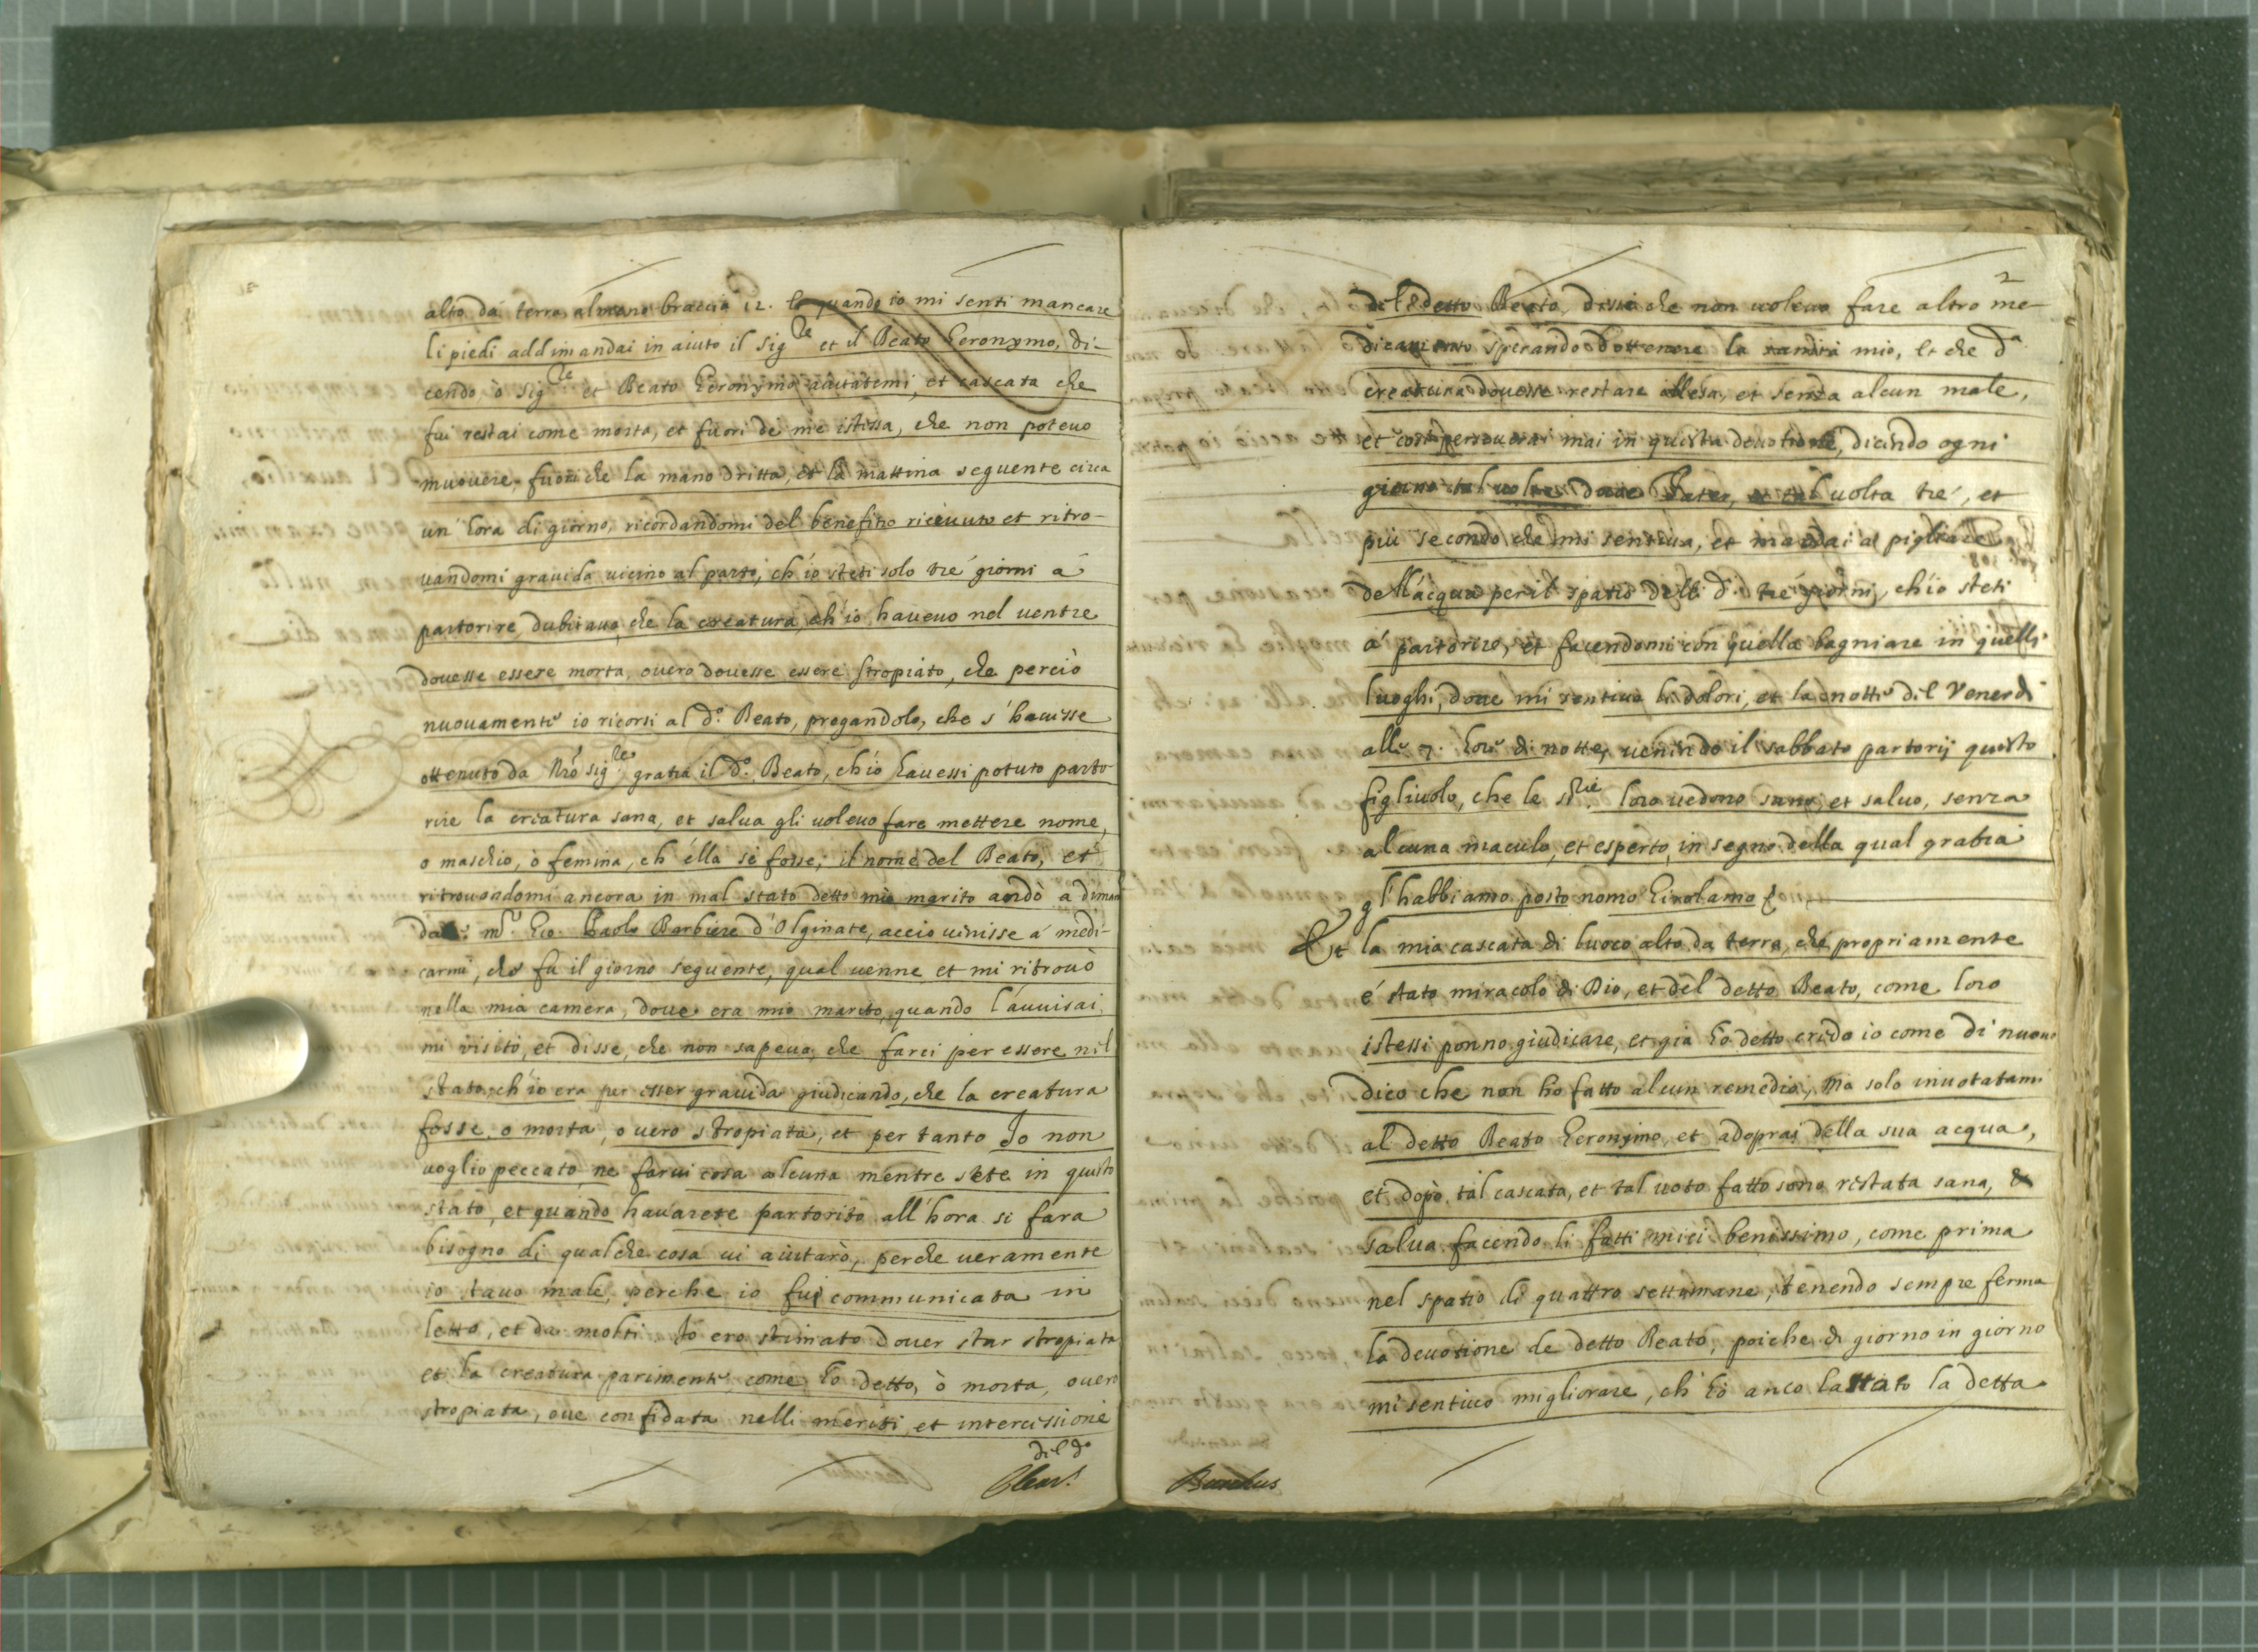 alto da terra almeno braccia 12. et quando io mi senti mancare
li piedi addimandai in aiuto il Sig.re et il Beato Geronymo, di-
cendo, ò Sig.re et Beato Geronymo aiutatemi, et cascata che
fui restai come morta, et fuori de me istessa, che non potevo
muovere, fuori che la mano dritta, et la mattina seguente circa
un' hora di giorno, ricordandomi del benefitio ricevuto et ritro-
vandomi gravida vicino al parto, ch'io steti solo tré giorni á
partorire, dubitavo, che la creatura, ch'io havevo nel ventre
dovesse essere morta, overo dovesse essere stropiato, che perciò
nuovamente io ricorsi al d.o Beato, pregandolo, che s'havesse
ottenuto da Nro Sig.re gratia il d.o Beato, ch'io havessi potuto parto-
rire la creatura sana, et salva gli volevo fare mettere nome,
o maschio, ò femina, ch'élla se fosse, il nome del Beato, et
ritrovandomi ancora in mal stato detto mio marito andò a diman
dare m.r Gio. Paolo Barbiere d'Olginate, accio venisse á medi-
carmi, che fu il giorno seguente, qual venne et mi ritrovò
nella mia camera, dove era mio marito, quando l'avvisai,
mi visitò, et disse, che non sapeva, che farci per essere nel
stato, ch'io era per esser gravida giudicando, che la creatura
fosse, o morta, overo stropiata, et per tanto Io non
voglio peccato ne farvi cosa alcuna mentre sete in questo
stato, et quando havarete partorito all'hora si fara
bisogno di qualche cosa vi aiutarò, perche veramente
io stavo male, perche io fui communicata in
letto, et da molti Io ero stimato dover star stropiata
et la creatura parimente, come hò detto, ò morta, overo
stropiata, ove confidata nelli meriti, et intercessione
del d.o
2
del detto Beato, dissi che non volevo fare altro me-
dicamento sperando d'ottenere la sanità mio, et che d.a
creatura dovesse restare illesa, et senza alcun male,
et così perseverai mai in questa devotione, dicendo ogni
giorno tal volta dove Pater, et tal volta tré, et
più secondo che mi sentiva, et mandai a pigliare
dell'acqua per il spatio delli d.i tré giorni, ch'io steti
á partorire, et facendomi con quella bagniare in quelli
luoghi, dove mi sentivo li dolori, et la notte del Venerdi
alle 7. hore di notte, venendo il sabbato partorij questo
figliuolo, che le S.rie loro vedono sano, et salvo, senza
alcuna macula, et esperto, in segno della qual gratia
gl'habbiamo posto nome Girolamo
Et la mia cascata di luoco alto da terra, che propriamente
é stato miracolo di Dio, et del detto Beato, come loro
istessi ponno giudicare, et già hò detto credo io come di nuovo
dico che non hò fatto alcun remedio, ma solo invotatami
al detto Beato Geronymo, et adoprai della sua acqua,
et dopò tal cascata, et tal voto fatto sono restata sana, &
salva facendo li fatti miei benissimo, come prima
nel spatio di quattro settimane, tenendo sempre ferma
la devotione de detto Beato, poiche di giorno in giorno
mi sentivo migliorare, ch'hò anco lasciato la detta